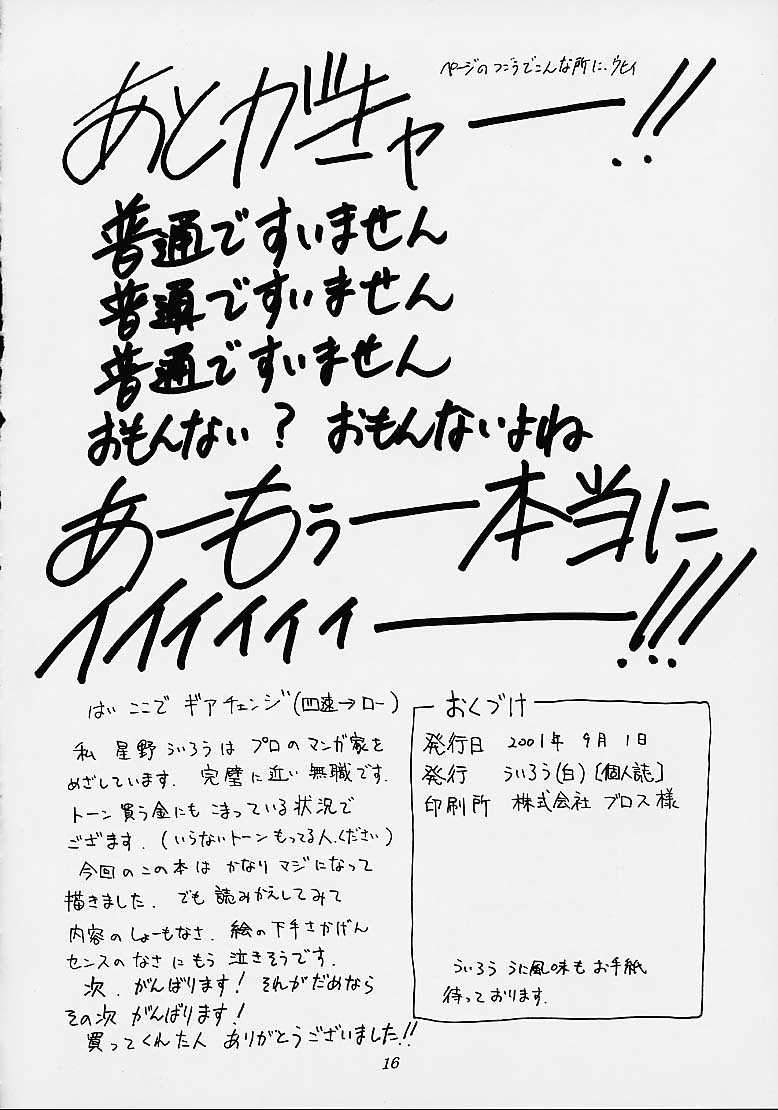 ページのつごうでこんな所に、ウヒィ
あとがキャー!!
普通ですいません
普通ですいません
普通ですいません
おもんない？ おもんないよね
あーもぅー本当に
イイイィィィー!!!
はい ここで ギアチェンジ(四速→ロー)
私 星野ういろうは プロのマンガ家を
めざしています. 完璧に近い無職です.
トーン買う金にも こまっている状況で
ござます. (いらないトーンもってる人、ください)
今回のこの本は かなりマジになって
描きました. でも 読みかえしてみて
内容のしょーもなさ、絵の下手さかげん
センスのなさにもう 泣きそうです.
次、がんばります! それがだめなら
その次 がんばります!
買ってくれた人 ありがとうございました!!
おくづけ
発行日 2001年 9月 1日
発行 ういろう(白) [個人誌]
印刷所 株式会社 ブロス様
ういろう うに風味も お手紙
待っております.
16